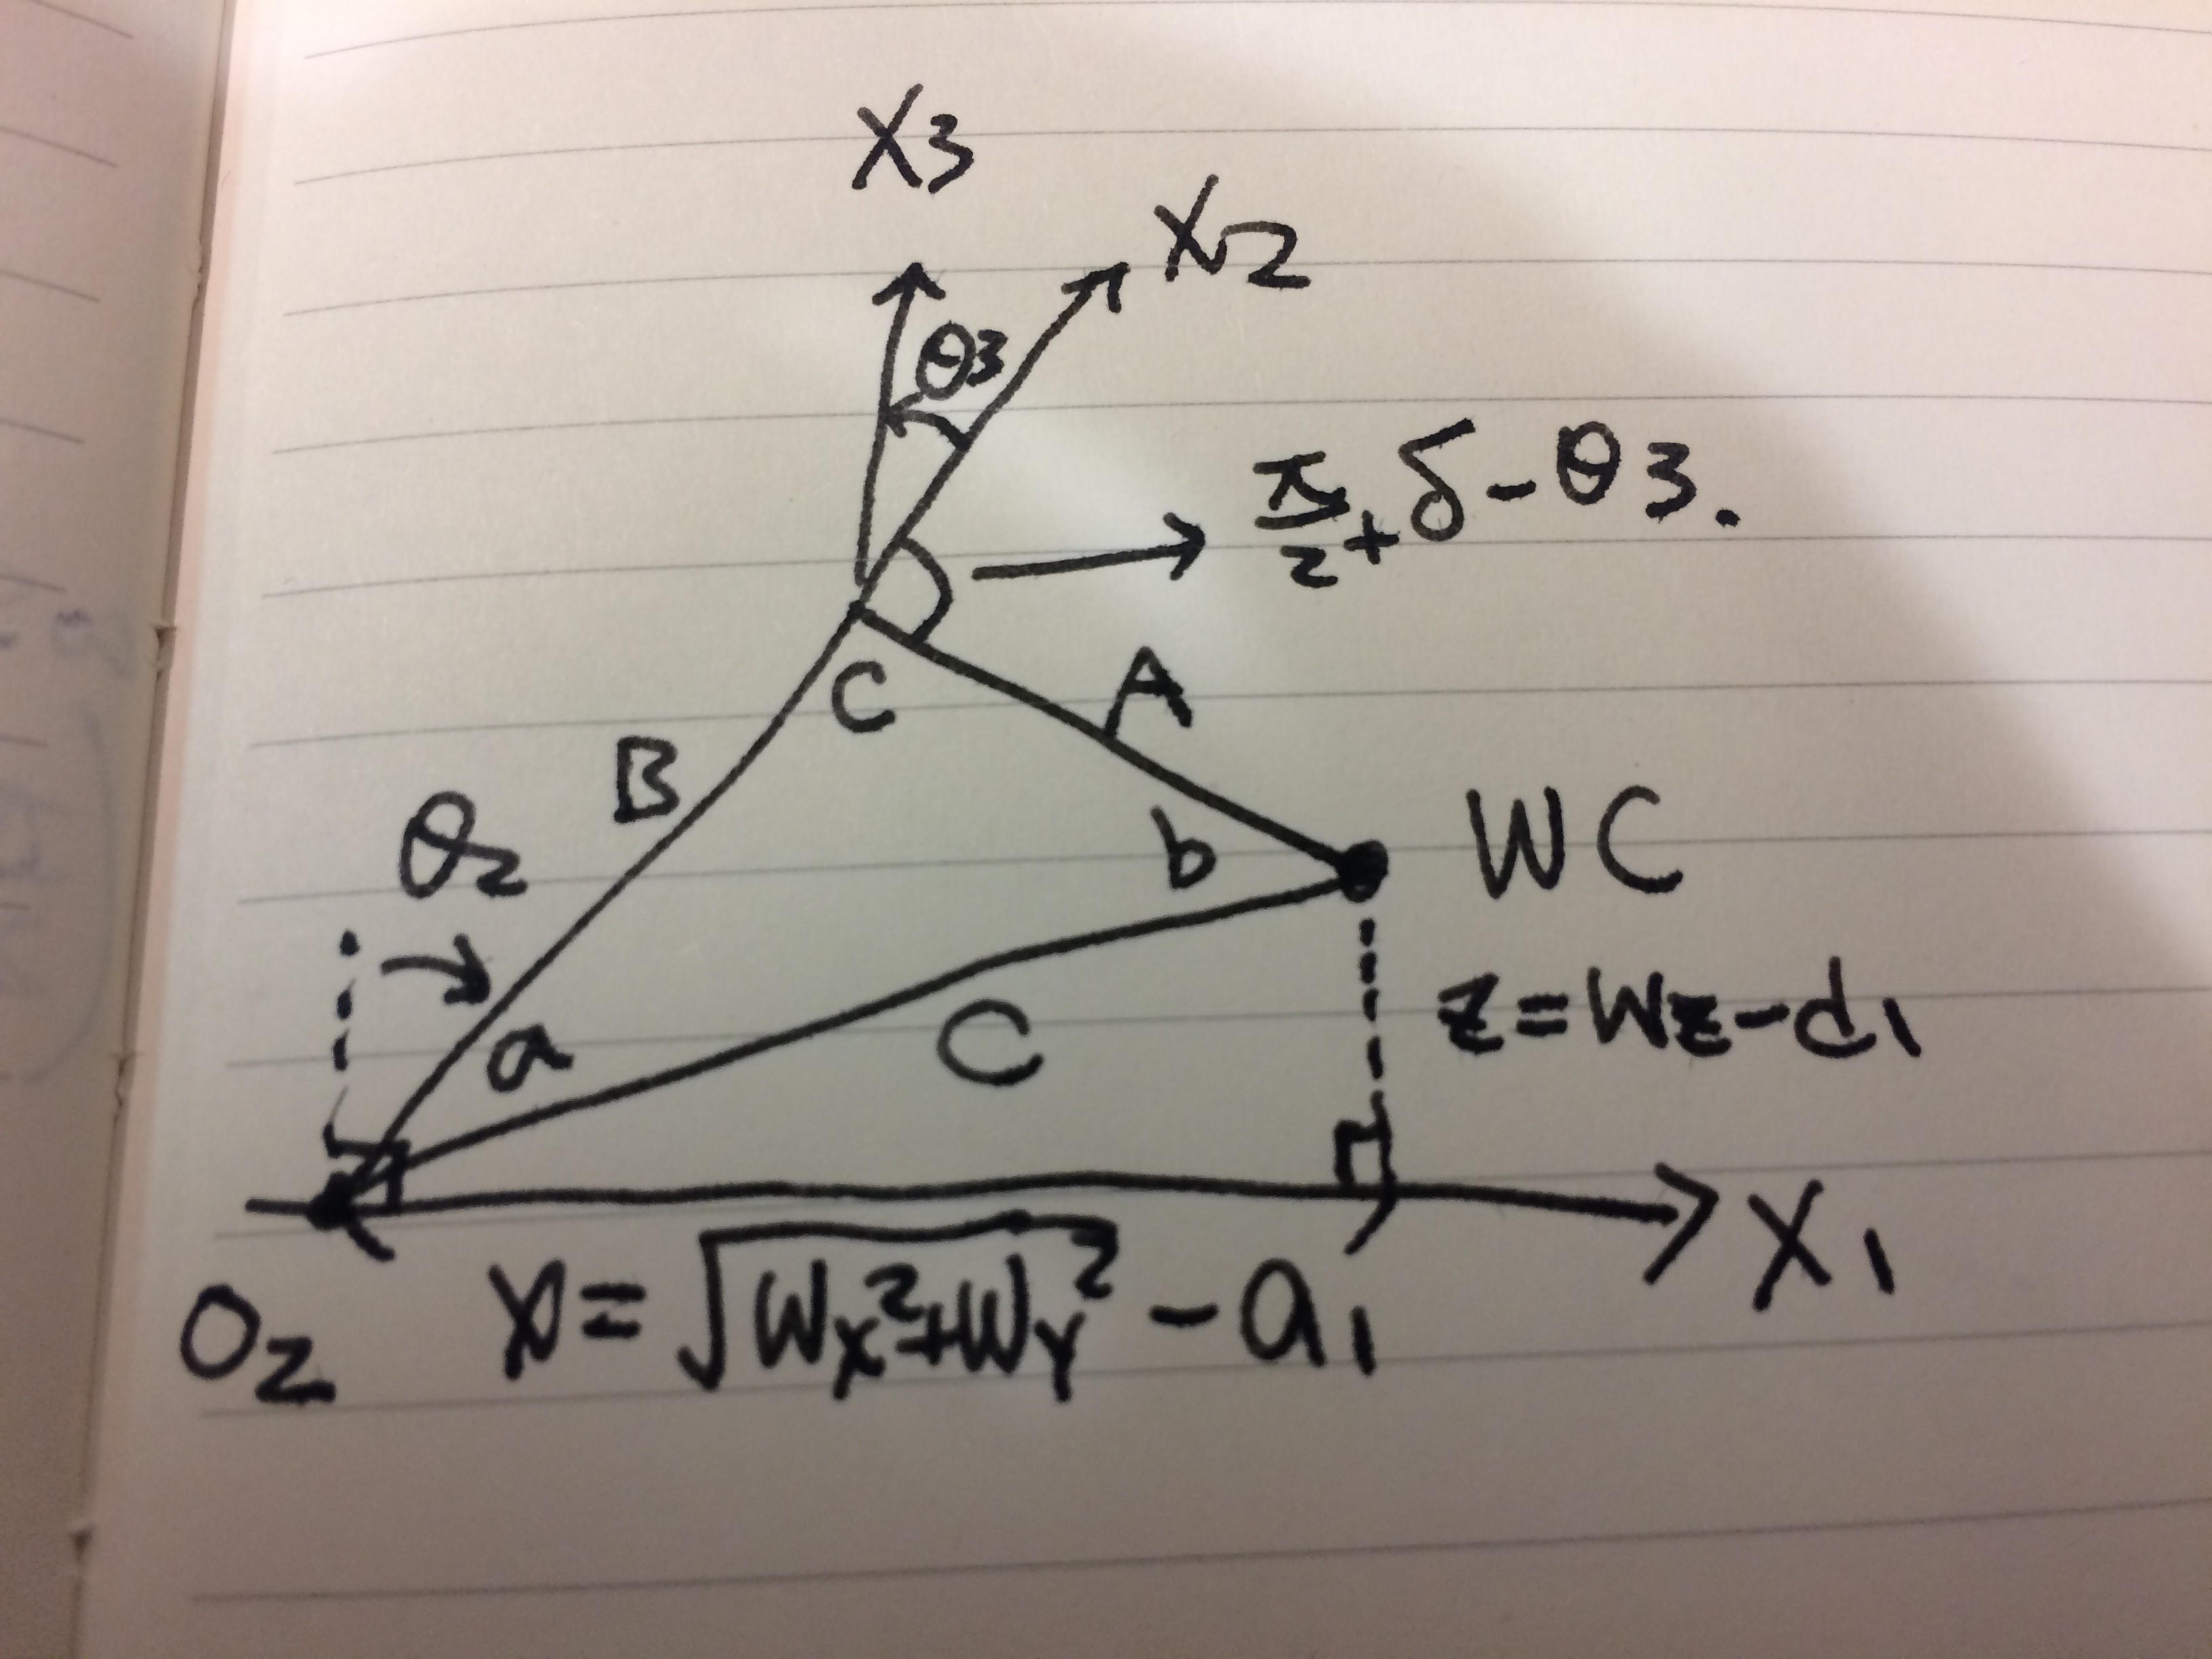 X3
X2
θ3
π/2 + δ - θ3.
C
A
B
θ2
b
WC
a
C
z = Wz - d1
X1
O2
x = √(Wx² + Wy²) - a1